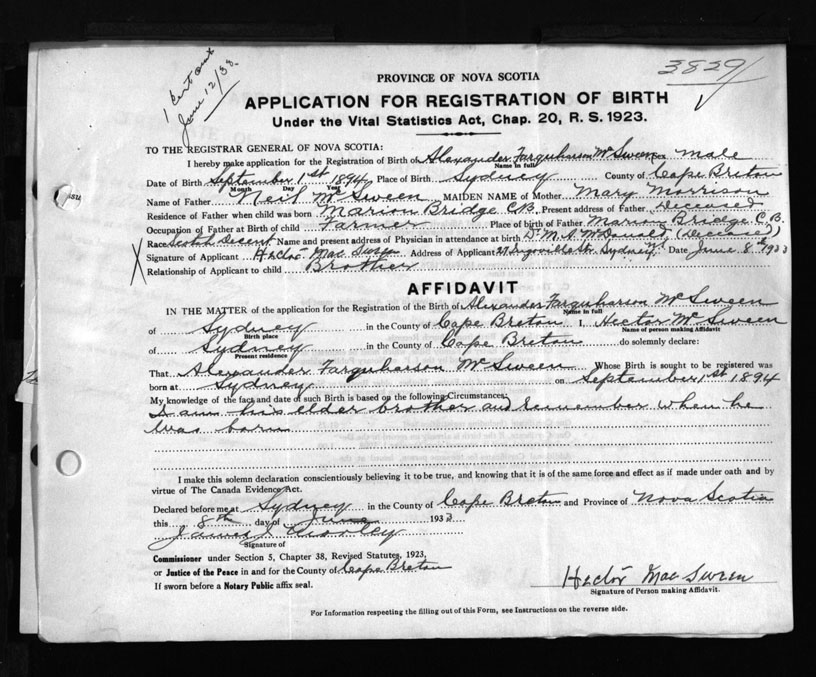 1 Cert out
June 12/33.
3829
PROVINCE OF NOVA SCOTIA
APPLICATION FOR REGISTRATION OF BIRTH
Under the Vital Statistics Act, Chap. 20, R. S. 1923.
TO THE REGISTRAR GENERAL OF NOVA SCOTIA:
I hereby make application for the Registration of Birth of Alexander Farquharson McSween Sex male
Name in full
Date of Birth September 1st 1894 Place of Birth Sydney County of Cape Breton
Month Day Year
Name of Father Neil McSween MAIDEN NAME of Mother Mary Morrison
Residence of Father when child was born Marion Bridge C.B. Present address of Father deceased
Occupation of Father at Birth of child Farmer Place of birth of Father Marion Bridge C.B.
Race Scotch Descent Name and present address of Physician in attendance at birth Dr M. A. McDonald (Deceased)
Signature of Applicant Hector MacSween Address of Applicant Sydney Date June 8th 1933
Relationship of Applicant to child Brother
AFFIDAVIT
IN THE MATTER of the application for the Registration of the Birth of Alexander Farquharson McSween
Name in full
of Sydney in the County of Cape Breton I, Hector McSween
Birth place Name of person making Affidavit
of Sydney in the County of Cape Breton do solemnly declare:
Present residence
That Alexander Farquharson McSween Whose Birth is sought to be registered was
born at Sydney on September 1st 1894
My knowledge of the fact and date of such Birth is based on the following Circumstances
I am his elder brother and remember when he
was born
I make this solemn declaration conscientiously believing it to be true, and knowing that it is of the same force and effect as if made under oath and by
virtue of The Canada Evidence Act.
Declared before me at Sydney in the County of Cape Breton and Province of Nova Scotia
this 8th day of June 1933
James
Signature of
Commissioner under Section 5, Chapter 38, Revised Statutes, 1923,
or Justice of the Peace in and for the County of Cape Breton
If sworn before a Notary Public affix seal.
Hector MacSween
Signature of Person making Affidavit.
For Information respecting the filling out of this Form, see Instructions on the reverse side.